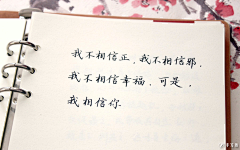 我不相信正，我不相信邪，
我不相信幸福，可是，
我相信你